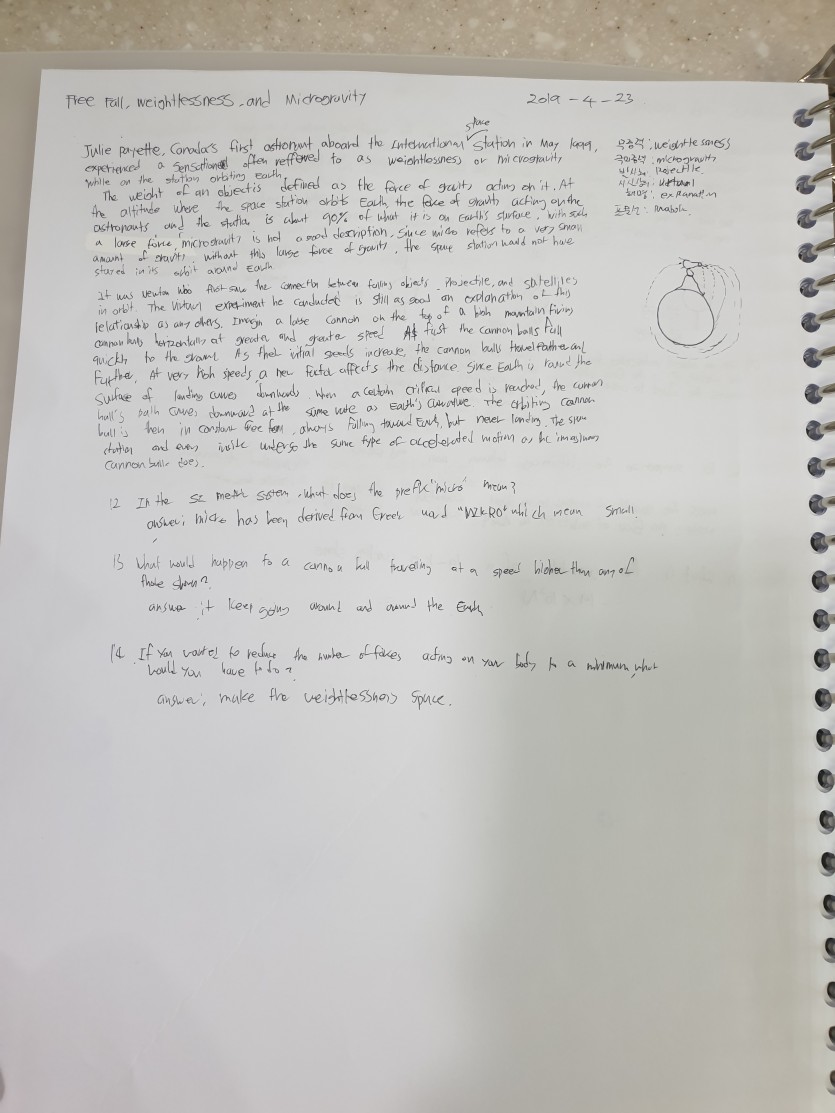 Free Fall, weightlessness, and Microgravity
2019 - 4 - 23
space
Julie payette, Canada's first astronunt aboard the International Station in May 1999,
experienced a Sensational often reffered to as weightlessness or microgravity
while on the station orbiting earth.
The weight of an object is defined as the force of gravity acting on it. At
the altitude where the space station orbits Earth, the force of gravity acting on the
astronauts and the station is about 90% of what it is on Earth's surface. with such
a large force, microgravity is not a good description, since micro refers to a very small
amount of gravity. without this large force of gravity, the space station would not have
stayed in its orbit around Earth
무중력 : weightlessness
극미중력 : microgravity
projectile.
virtual
해명 : exPlanation
포물선 :
It was newton who first saw the connection between falling objects, Projectile, and satellites
in orbit. The virtual experiment he conducted is still as good an explanation of this
relationship as any others. Imagin a large cannon on the top of a high mountain firing
cannon balls horizontally at greater and greater speed At first the cannon balls fall
quickly to the ground. As their initial speeds increase, the cannon balls travel farther and
Further. At very high speeds a new factor affects the distance since Earth is round the
surface of landing curves downwards. when a certain critical speed is reached, the cannon
ball's path curves downward at the same rate as Earth's curvature. The orbiting cannon
ball is then in constant free fall, always falling toward Earth, but never landing. The space
station and every inside undergo the same type of accelerated motion as the imaginary
cannon balls does.
12 In the SI metric system, what does the prefix "micro" mean?
answer: micro has been derived from Greek word "MIKRO" which mean small.
13 What would happen to a cannon ball traveling at a speed higher than any of
those shown?
answer it keep going around and around the Earth
14 If You wanted to reduce the number of forces acting on your body to a minimum, what
would you have to do?
answer; make the weightlessness space.